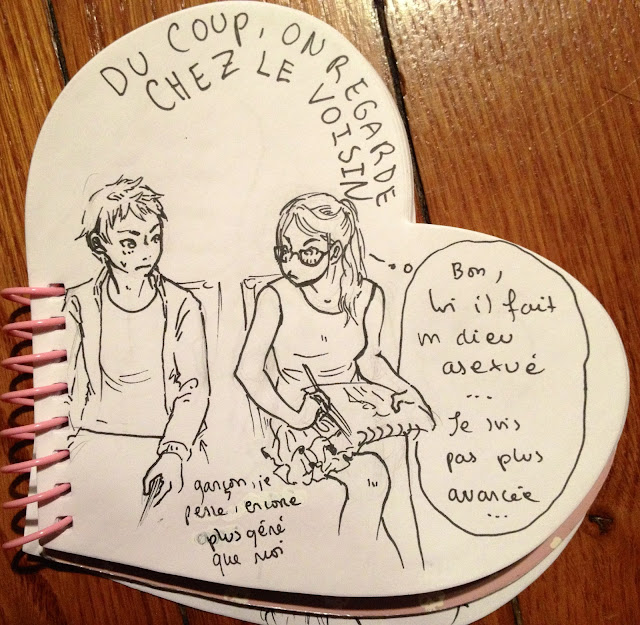 DU COUP, ON REGARDE
CHEZ LE VOISIN
Bon,
lui il fait
un dieu
asexué
...
Je suis
pas plus
avancée
...
garçon, je
pense, encore
plus gêné
que moi